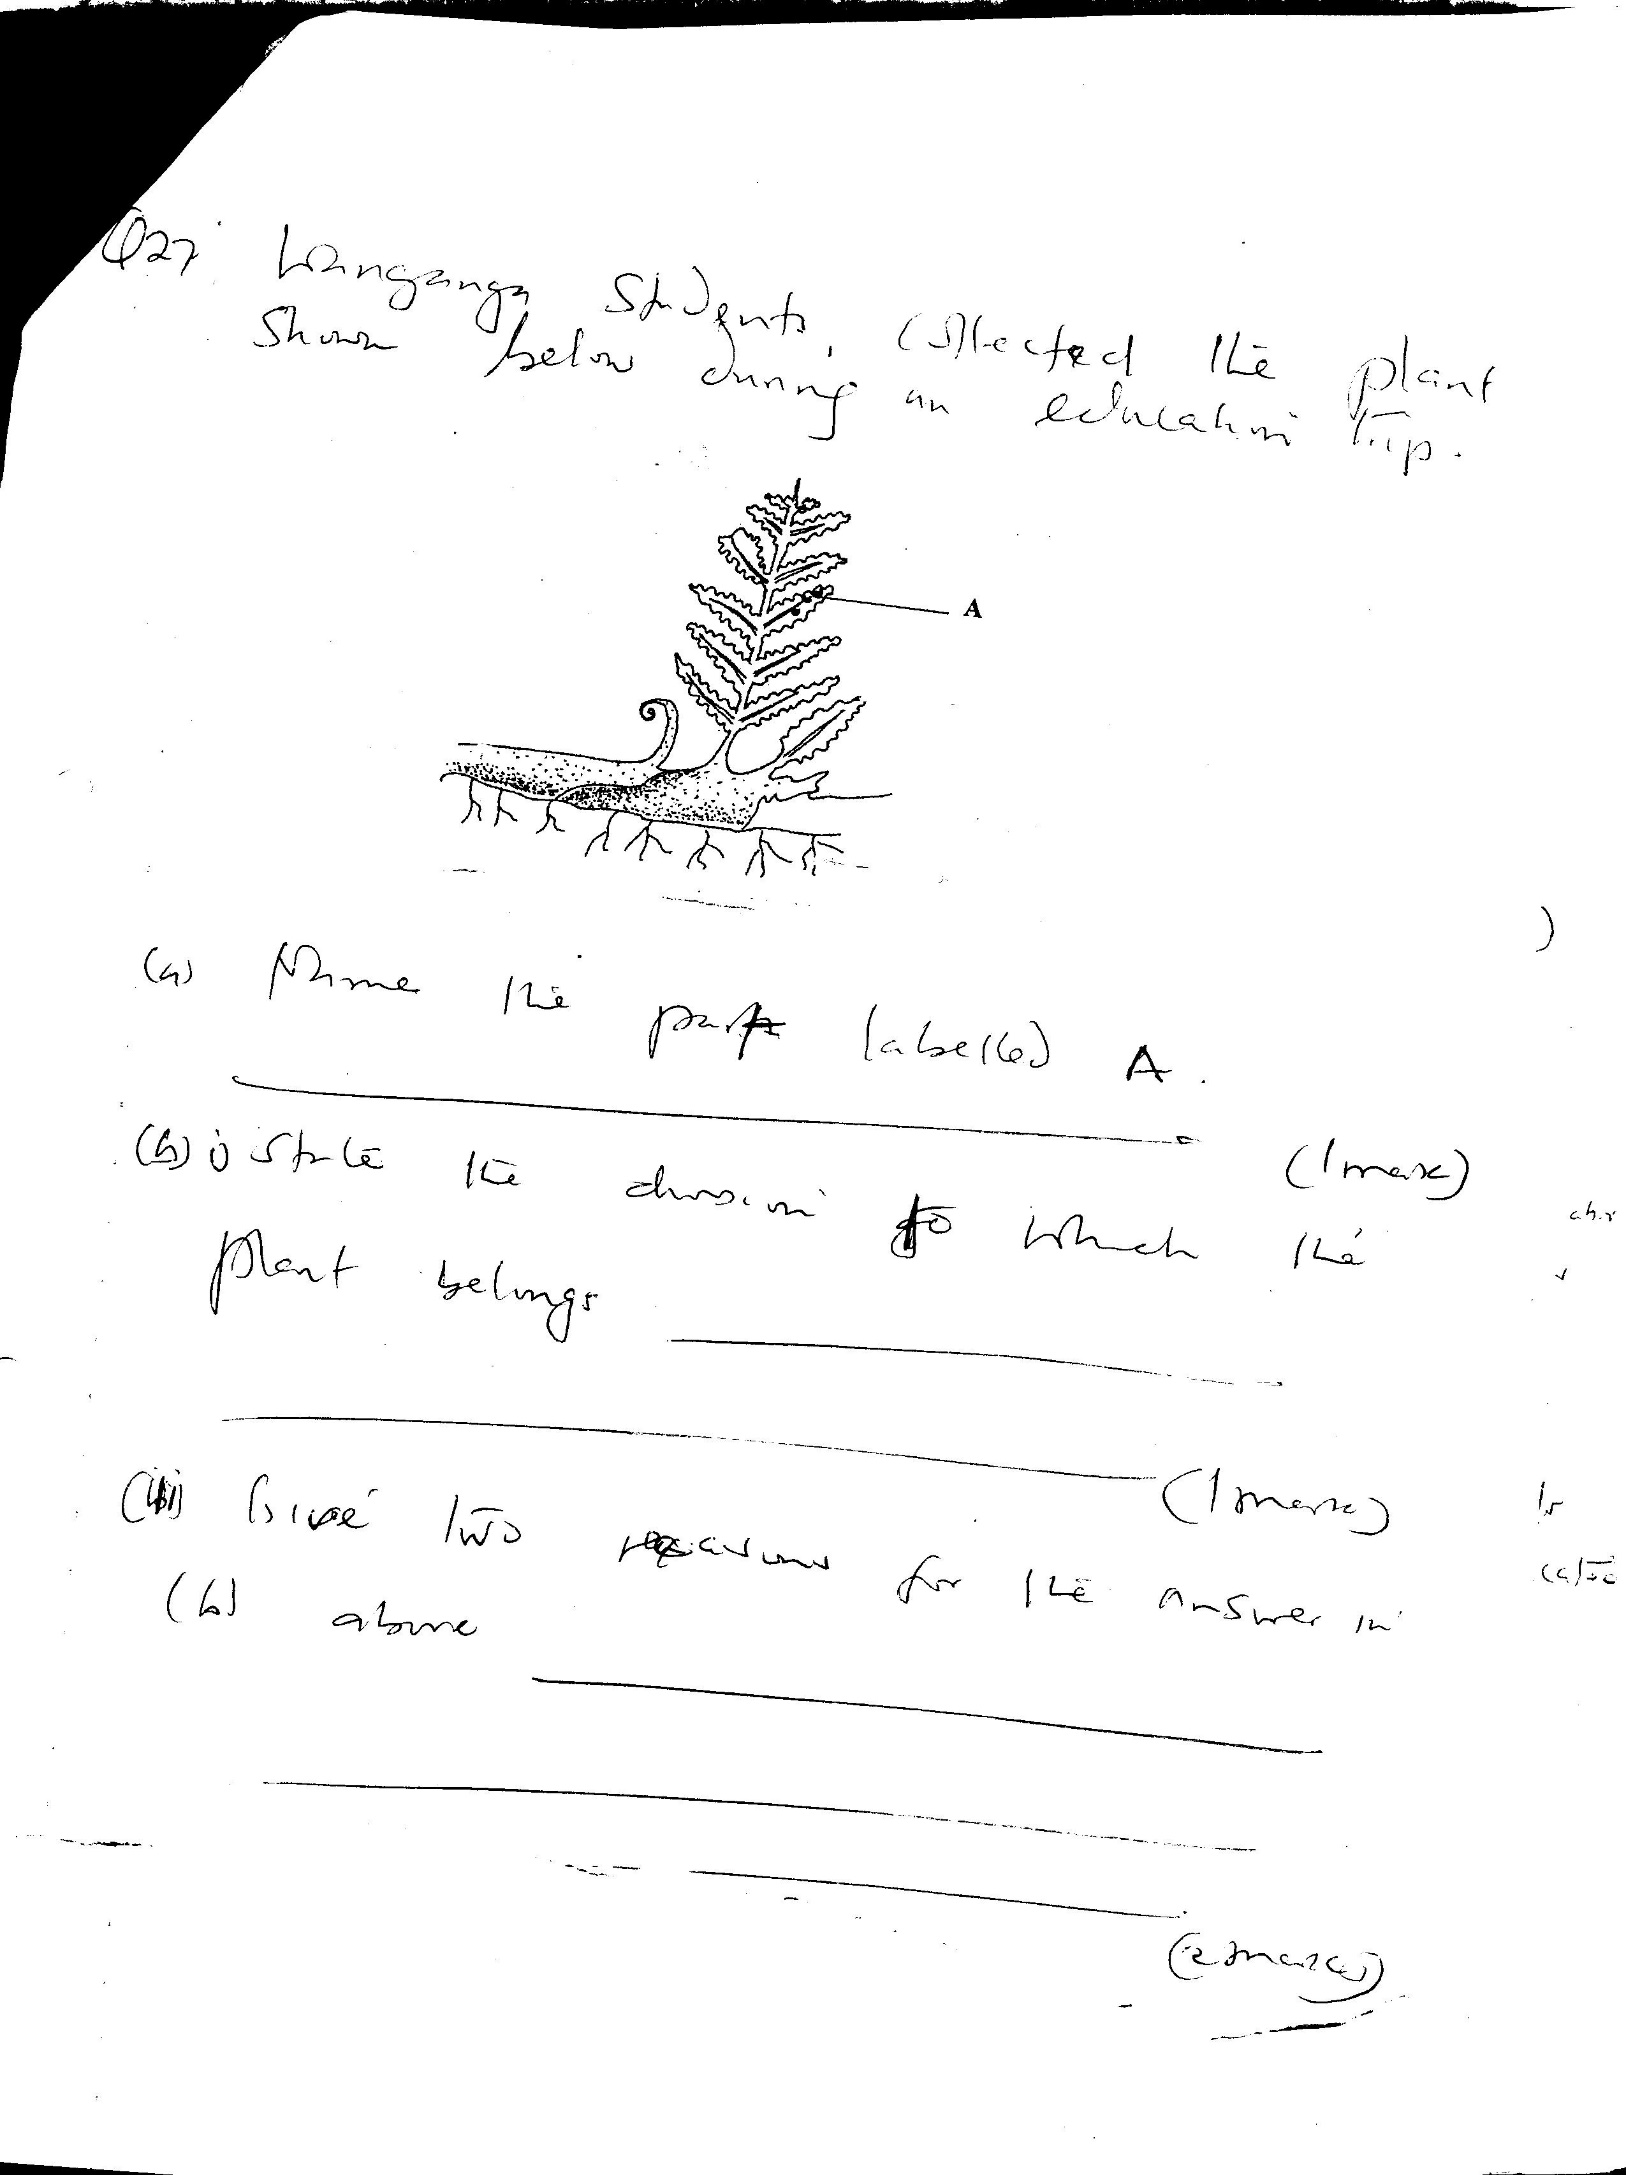 Q27 Wanganga Students, collected the plant
shown below during an education trip.
A
(a) Name the part labelled A.
(1 mark)
(b) i) State the division to which the
plant belongs
(1 mark)
(ii) Give two reasons for the answer in
(b) above
(2 marks)